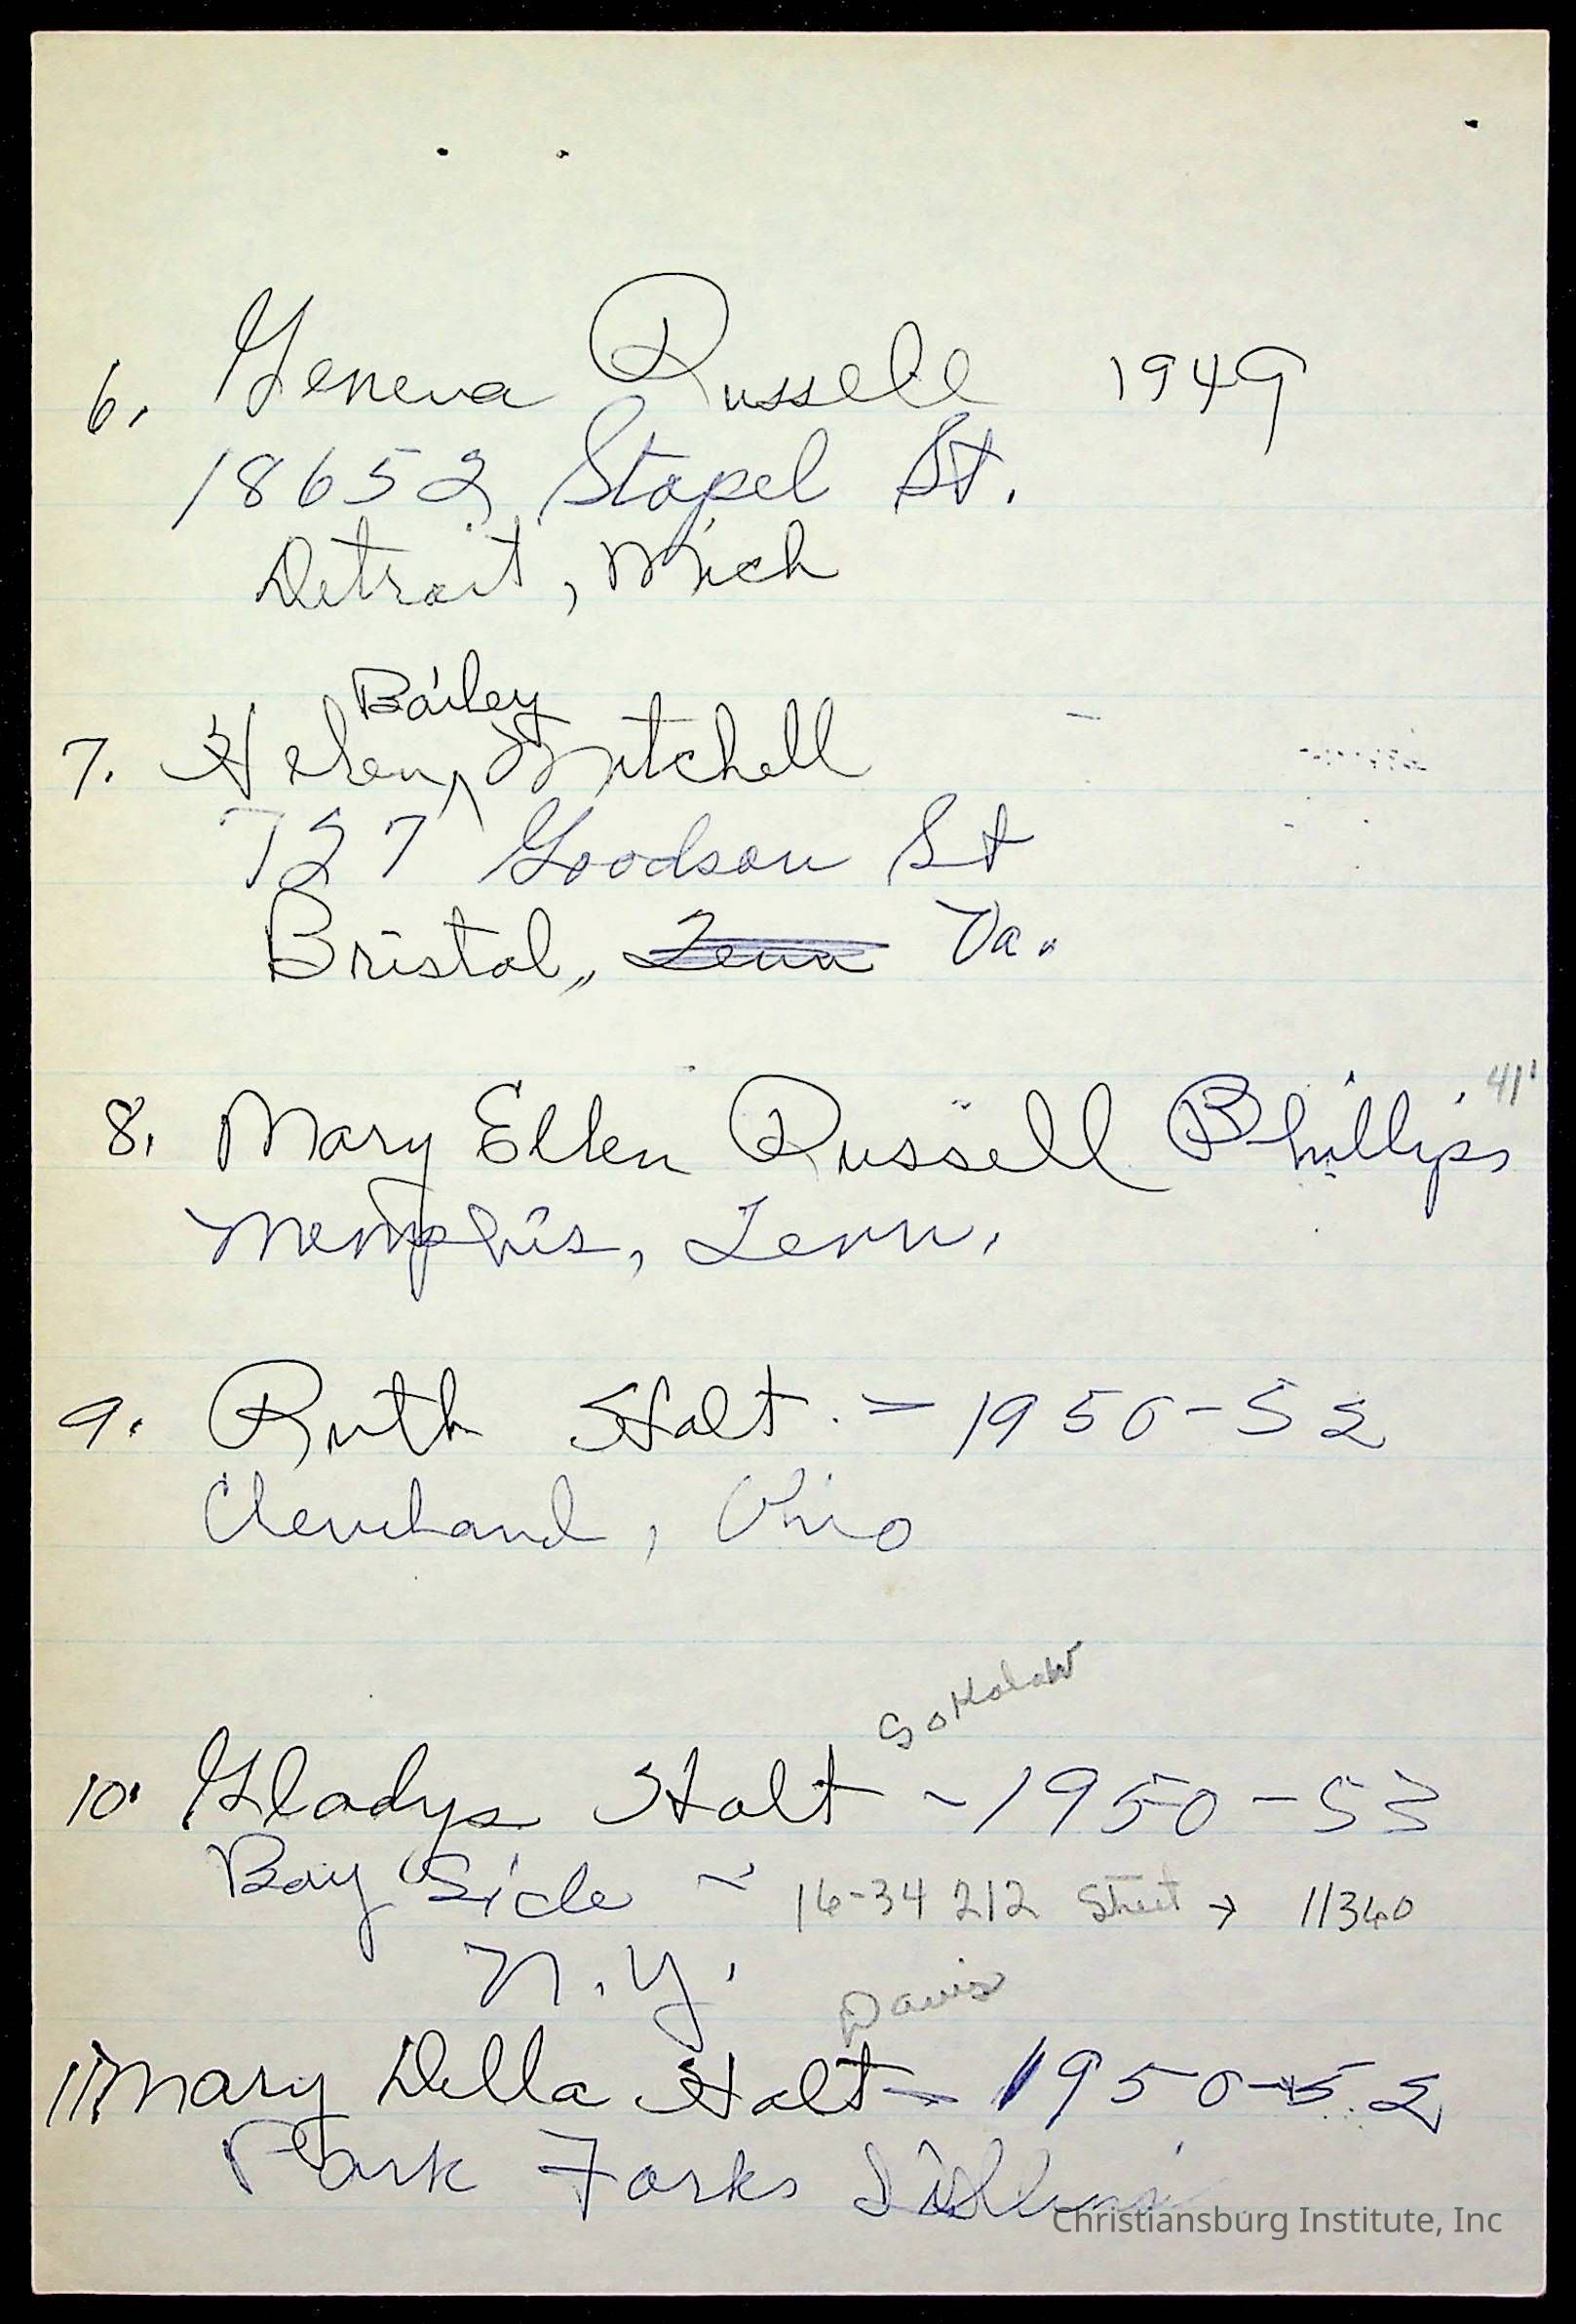 6. Geneva Russell 1949
18652 Stopel St.
Detroit, Mich
Bailey
7. Helen ^ Mitchell
727 Goodson St
Bristol, Tenn Va.
41'
8. Mary Ellen Russell Phillips
Memphis, Tenn.
9. Ruth Holt - 1950-52
Cleveland, Ohio
10. Gladys Holt - 1950-53
Bay Side - 16-34 212 Street → 11360
N.Y.
Davis
11 Mary Della Holt - 1950-52
Park Forks
Christiansburg Institute, Inc